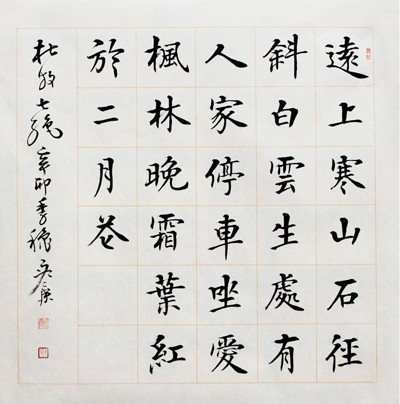 遠上寒山石徑
斜白雲生處有
人家停車坐愛
楓林晚霜葉紅
於二月花
杜牧七絕辛卯季穐